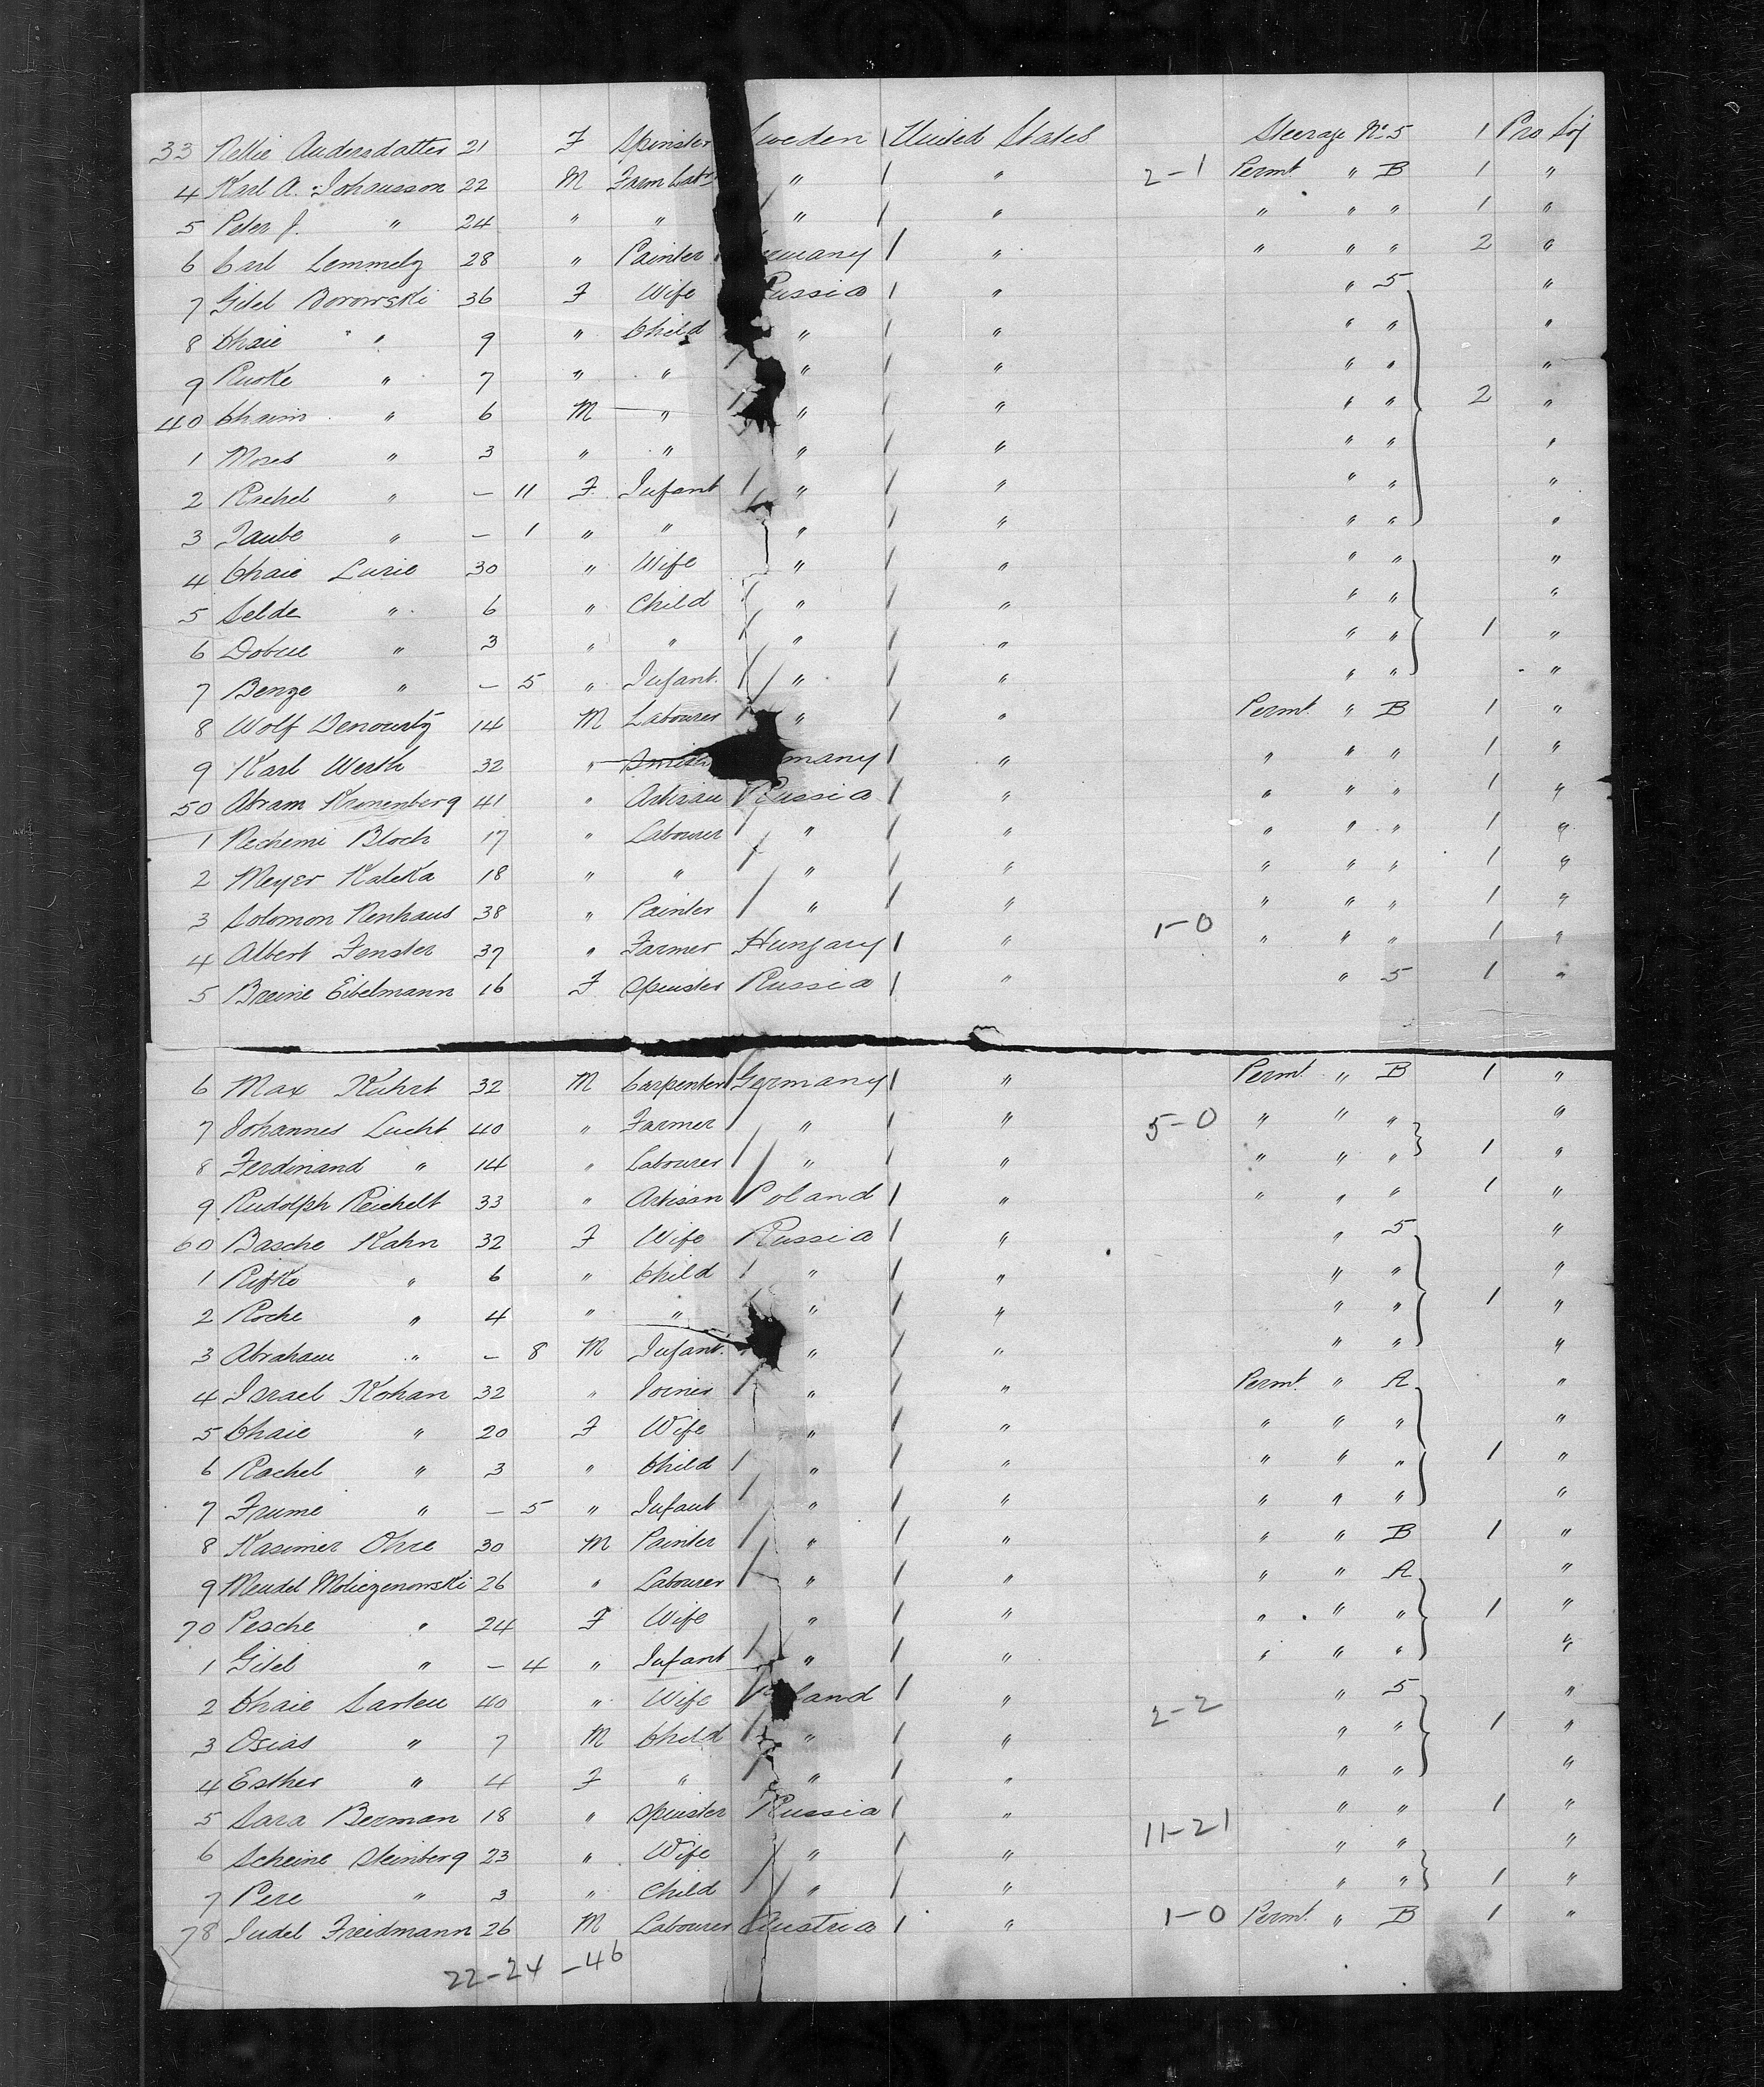 33 Nellie Andersdatter 21 F Spinster Sweden 1 United States Steerage No 5 1 Pro Soj
4 Karl A. Johansson 22 M Farm Labr " 1 " 2-1 Permt. " B 1 "
5 Peter J. " 24 " " " 1 " " " " 1 "
6 Carl Lemmelz 28 " Painter Germany 1 " " " " 2 "
7 Gitel Borowski 36 F Wife Russia 1 " " 5 "
8 Chaie " 9 " Child " 1 " " " "
9 " 7 " " " 1 " " " "
40 Chaim " 6 M " " 1 " " " 2 "
1 Moses " 3 " " " 1 " " " "
2 Rachel " — 11 F Infant " 1 " " " "
3 Taube " — 1 " " " 1 " " " "
4 Chaie Lurie 30 " Wife " 1 " " " "
5 Selde " 6 " Child " 1 " " " "
6 " 3 " " " 1 " " " 1 "
7 Benze " — 5 " Infant. " 1 " " " "
8 Wolf 14 M Labourer " 1 " Permt. " B 1 "
9 Karl Werth 32 " Germany 1 " " " " 1 "
50 Abram Kronenberg 41 " Artisan Russia 1 " " " " 1 "
1 Nechemi Bloch 17 " Labourer " 1 " " " " 1 "
2 Meyer Kaleka 18 " " " 1 " " " " 1 "
3 Solomon Nenhaus 38 " Painter " 1 " " " " 1 "
4 Albert Fenster 37 " Farmer Hungary 1 " 1-0 " " " 1 "
5 Breine Eibelmann 16 F Spinster Russia 1 " " 5 1 "
6 Max Kuhrt 32 M Carpenter Germany 1 " Permt. " B 1 "
7 Johannes Lucht 40 " Farmer " 1 " 5-0 " " " "
8 Ferdinand " 14 " Labourer " 1 " " " " 1 "
9 Rudolph Reichelt 33 " Artisan Poland 1 " " " " 1 "
60 Basche Kahn 32 F Wife Russia 1 " " 5 "
1 Rifke " 6 " Child " 1 " " " "
2 Roche " 4 " " " 1 " " " 1 "
3 Abraham " — 8 M Infant. " 1 " " " "
4 Israel Kohan 32 " Joiner " 1 " Permt. " A "
5 Chaie " 20 F Wife " 1 " " " " "
6 Rachel " 3 " Child " 1 " " " " 1 "
7 Frume " — 5 " Infant " 1 " " " " "
8 Kasimer Ohre 30 M Painter " 1 " " " B 1 "
9 Mendel Moliczenowski 26 " Labourer " 1 " " " A "
70 Pesche " 24 F Wife " 1 " " " " 1 "
1 Gitel " — 4 " Infant " 1 " " " " "
2 Chaie 40 " Wife Poland 1 " 2-2 " 5 "
3 Osias " 7 M Child " 1 " " " 1 "
4 Esther " 4 F " " 1 " " " "
5 Sara Berman 18 " Spinster Russia 1 " " " 1 "
6 Scheine Steinberg 23 " Wife " 1 " 11-21 " " "
7 Pere " 3 " Child " 1 " " " 1 "
78 Judel Freidmann 26 M Labourer Austria 1 " 1-0 Permt. " B 1 "
22-24 - 46